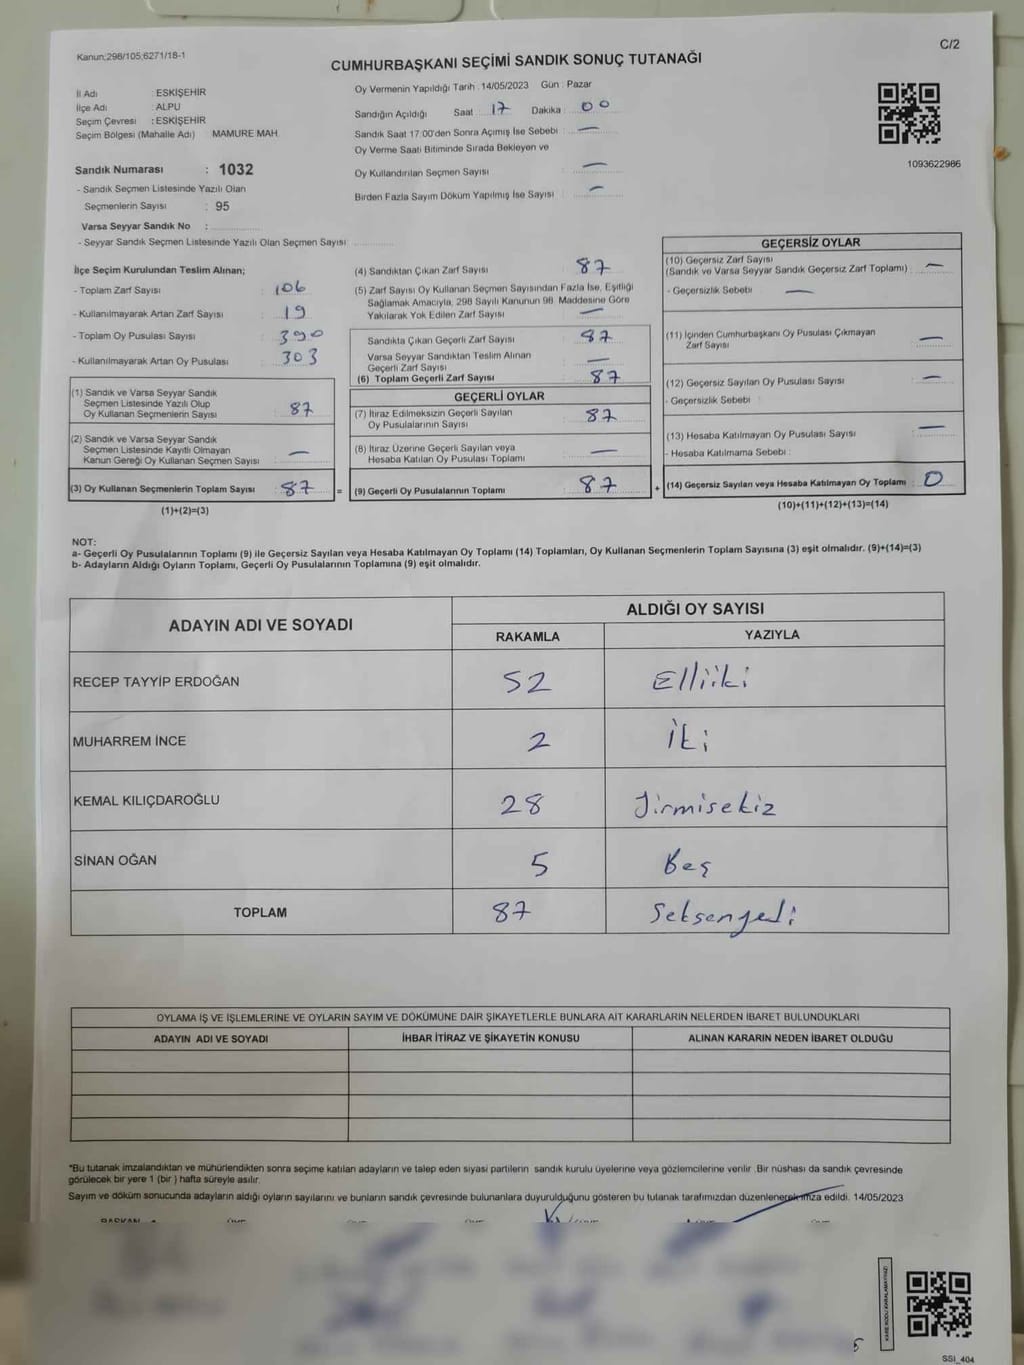 Kanun;298/105;6271/18-1
C/2
CUMHURBAŞKANI SEÇİMİ SANDIK SONUÇ TUTANAĞI
İl Adı : ESKİŞEHİR
İlçe Adı : ALPU
Seçim Çevresi : ESKİŞEHİR
Seçim Bölgesi (Mahalle Adı) : MAMURE MAH.
Sandık Numarası : 1032
- Sandık Seçmen Listesinde Yazılı Olan
Seçmenlerin Sayısı : 95
Varsa Seyyar Sandık No :
- Seyyar Sandık Seçmen Listesinde Yazılı Olan Seçmen Sayısı
Oy Vermenin Yapıldığı Tarih : 14/05/2023 Gün : Pazar
Sandığın Açıldığı Saat : 17 Dakika : 00
Sandık Saat 17:00'den Sonra Açımış İse Sebebi : —
Oy Verme Saati Bitiminde Sırada Bekleyen ve
Oy Kullandırılan Seçmen Sayısı : —
Birden Fazla Sayım Döküm Yapılmış İse Sayısı : —
1093622986
İlçe Seçim Kurulundan Teslim Alınan;
- Toplam Zarf Sayısı : 106
- Kullanılmayarak Artan Zarf Sayısı : 19
- Toplam Oy Pusulası Sayısı : 390
- Kullanılmayarak Artan Oy Pusulası : 303
(1) Sandık ve Varsa Seyyar Sandık
Seçmen Listesinde Yazılı Olup
Oy Kullanan Seçmenlerin Sayısı : 87
(2) Sandık ve Varsa Seyyar Sandık
Seçmen Listesinde Kayıtlı Olmayan
Kanun Gereği Oy Kullanan Seçmen Sayısı : —
(3) Oy Kullanan Seçmenlerin Toplam Sayısı : 87 =
(1)+(2)=(3)
(4) Sandıktan Çıkan Zarf Sayısı : 87
(5) Zarf Sayısı Oy Kullanan Seçmen Sayısından Fazla İse, Eşitliği
Sağlamak Amacıyla, 298 Sayılı Kanunun 98. Maddesine Göre
Yakılarak Yok Edilen Zarf Sayısı : —
Sandıkta Çıkan Geçerli Zarf Sayısı : 87
Varsa Seyyar Sandıktan Teslim Alınan
Geçerli Zarf Sayısı : —
(6) Toplam Geçerli Zarf Sayısı : 87
GEÇERLİ OYLAR
(7) İtiraz Edilmeksizin Geçerli Sayılan
Oy Pusulalarının Sayısı : 87
(8) İtiraz Üzerine Geçerli Sayılan veya
Hesaba Katılan Oy Pusulası Toplamı : —
(9) Geçerli Oy Pusulalarının Toplamı : 87 +
GEÇERSİZ OYLAR
(10) Geçersiz Zarf Sayısı
(Sandık ve Varsa Seyyar Sandık Geçersiz Zarf Toplamı) : —
- Geçersizlik Sebebi : —
(11) İçinden Cumhurbaşkanı Oy Pusulası Çıkmayan
Zarf Sayısı : —
(12) Geçersiz Sayılan Oy Pusulası Sayısı : —
- Geçersizlik Sebebi :
(13) Hesaba Katılmayan Oy Pusulası Sayısı : —
- Hesaba Katılmama Sebebi :
(14) Geçersiz Sayılan veya Hesaba Katılmayan Oy Toplamı : 0
(10)+(11)+(12)+(13)=(14)
NOT:
a- Geçerli Oy Pusulalarının Toplamı (9) ile Geçersiz Sayılan veya Hesaba Katılmayan Oy Toplamı (14) Toplamları, Oy Kullanan Seçmenlerin Toplam Sayısına (3) eşit olmalıdır. (9)+(14)=(3)
b- Adayların Aldığı Oyların Toplamı, Geçerli Oy Pusulalarının Toplamına (9) eşit olmalıdır.
ADAYIN ADI VE SOYADI
ALDIĞI OY SAYISI
RAKAMLA YAZIYLA
RECEP TAYYİP ERDOĞAN 52 Elliiki
MUHARREM İNCE 2 İki
KEMAL KILIÇDAROĞLU 28 Yirmisekiz
SİNAN OĞAN 5 Beş
TOPLAM 87 Seksenyedi
OYLAMA İŞ VE İŞLEMLERİNE VE OYLARIN SAYIM VE DÖKÜMÜNE DAİR ŞİKAYETLERLE BUNLARA AİT KARARLARIN NELERDEN İBARET BULUNDUKLARI
ADAYIN ADI VE SOYADI İHBAR İTİRAZ VE ŞİKAYETİN KONUSU ALINAN KARARIN NEDEN İBARET OLDUĞU
*Bu tutanak imzalandıktan ve mühürlendikten sonra seçime katılan adayların ve talep eden siyasi partilerin sandık kurulu üyelerine veya gözlemcilerine verilir .Bir nüshası da sandık çevresinde
görülecek bir yere 1 (bir ) hafta süreyle asılır.
Sayım ve döküm sonucunda adayların aldığı oyların sayılarını ve bunların sandık çevresinde bulunanlara duyurulduğunu gösteren bu tutanak tarafımızdan düzenlenerek imza edildi. 14/05/2023
BAŞKAN
KARE KODU KARALAMAYINIZ!
SSİ_404